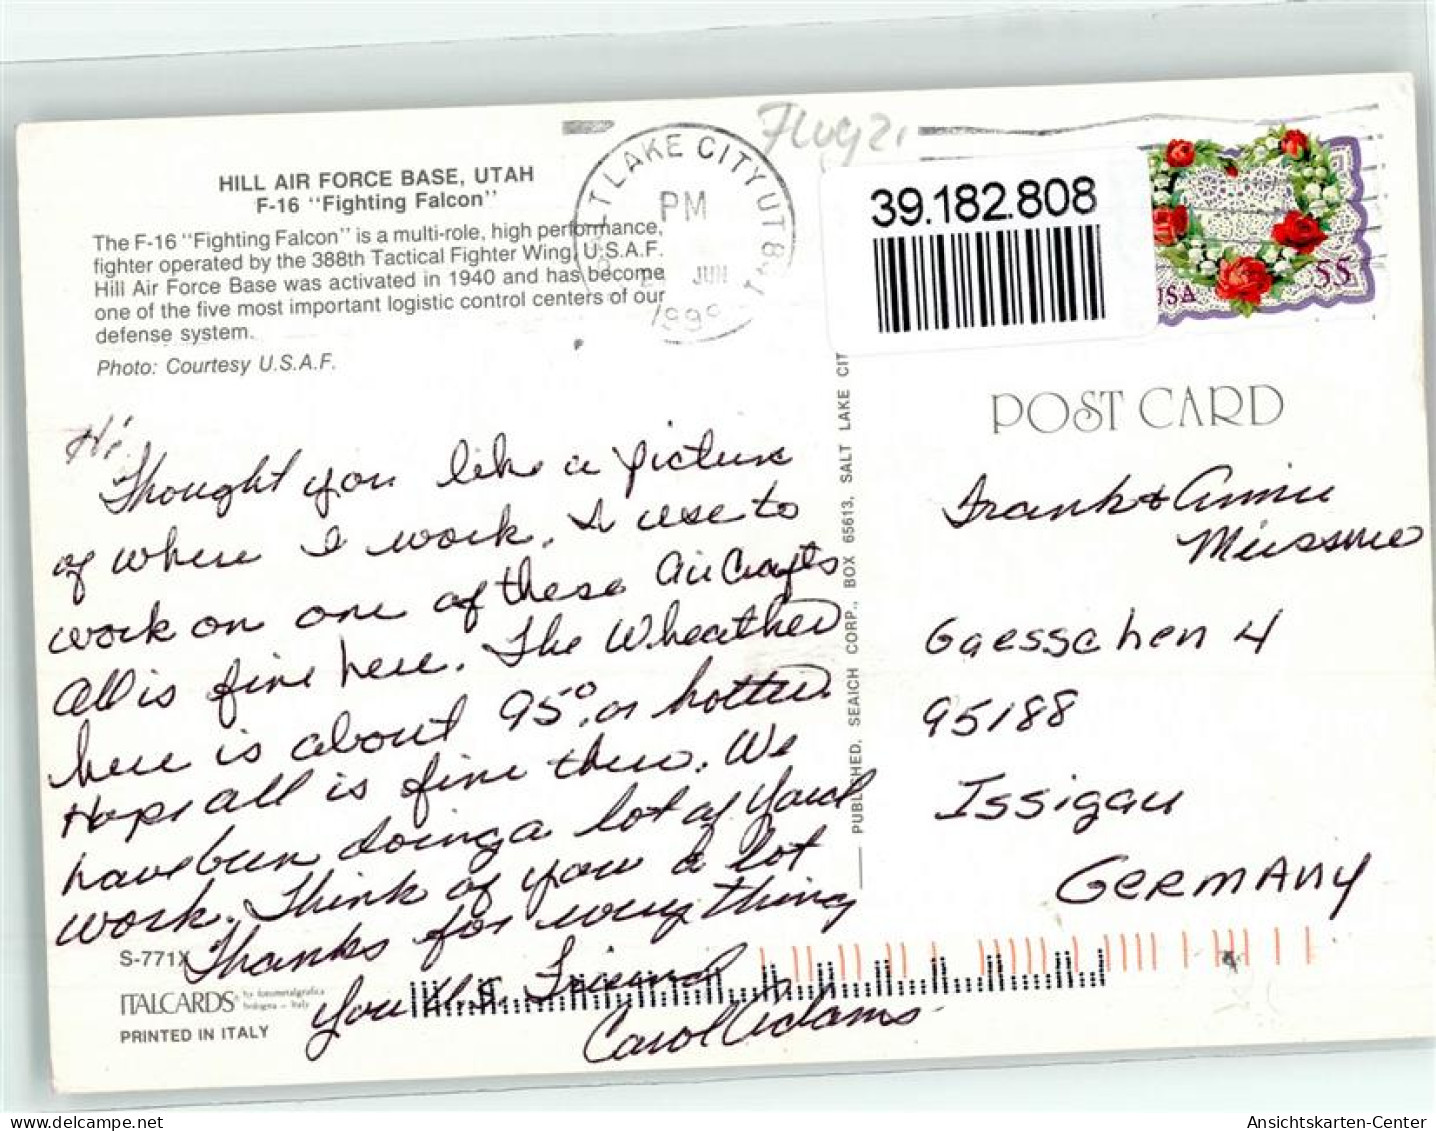 Flugz.
SALT LAKE CITY UT 841
PM
JUN
1999
39.182.808
USA
55
HILL AIR FORCE BASE, UTAH
F-16 "Fighting Falcon"
The F-16 "Fighting Falcon" is a multi-role, high performance,
fighter operated by the 388th Tactical Fighter Wing, U.S.A.F.
Hill Air Force Base was activated in 1940 and has become
one of the five most important logistic control centers of our
defense system.
Photo: Courtesy U.S.A.F.
POST CARD
Hi.
Thought you like a picture
of where I work. I use to
work on one of these Air Crafts
All is fine here. The Wheather
here is about 95°. or hotter.
Hope all is fine there. We
have been doing a lot of Yard
work. Think of you a lot
Thanks for everything
your U.S. Friend
Carol Adams
Frank & Annie
Gaesschen 4
95188
Issigau
GERMANY
PUBLISHED, SEAICH CORP., BOX 65613, SALT LAKE CIT
S-771X
ITALCARDS by fotometalgrafica
bologna - Italy
PRINTED IN ITALY
Ansichtskarten-Center
oldthing.net